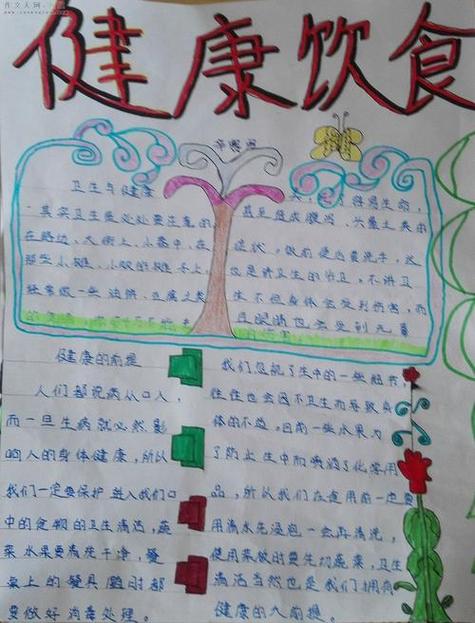 作文大网
健康饮食
卫生与健康
其实卫生是处处要注意的
在路边、大街上、小巷中、在
那些小摊、小贩的摊子上，
经常做一些油饼、豆腐之类
容易生病，
甚至造成腹泻、
症状，饭前便后要洗手，这
也是讲卫生的
生不但身体会受到伤害，而
且眼睛也会受到
健康的前提
人们都说病从口入，
而一旦生病就必然影
响人的身体健康，所以
我们一定要保护进入我们口
中的食物的卫生清洁，蔬
菜水果要清洗干净，餐
桌上的餐具随时都
要做好消毒处理。
我们忽视了生中的一些细节，
往往也会因不卫生而导致身
体的不适。目前一些水果为
了防止生中而喷洒了化学用
品，所以我们在食用前一定要
用清水先浸泡一会再清洗，
使用菜饭时要先切蔬菜，卫生
清洁当然也是我们拥有
健康的大前提。